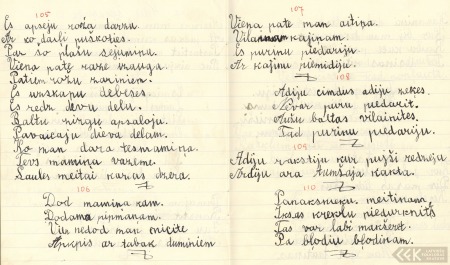 105
Es apseju roža darzu
Ar ko daili puškoties.
Par šo plašu sējumiņu.
Viena pate raže izauga.
Patiem rožu zariņiem.
Es uzskapu debeses.
Es redz dievu delu.
Baltu zirgu apsaloju.
Pavaicaju dieva delam.
Ko man dara tēsmamiņa.
Tevs mamiņa
Saules meitai dzēra
106
Dod mamiņa kam.
Dodama pipmaņam.
Viņ nedod man
Apkpis ar tabak dumiņiem
107
Viena pate man aitiņa.
Vilainam kajiņam.
Es puriņu piedariju
Ar kajiņu piemidiju.
108
Adiju cimdus adiju zekes.
Nevar puru piedarit.
Aužu baltas vilainites.
Tad puriņu piedariju.
109
Adiju rakstiju kur puiši redzeja
Ardiju ara kakta.
110
Panaksnieku meitiņam
kreklu piedurknits
Tas var labi makšeret.
Pa blodiņ blodiņam.